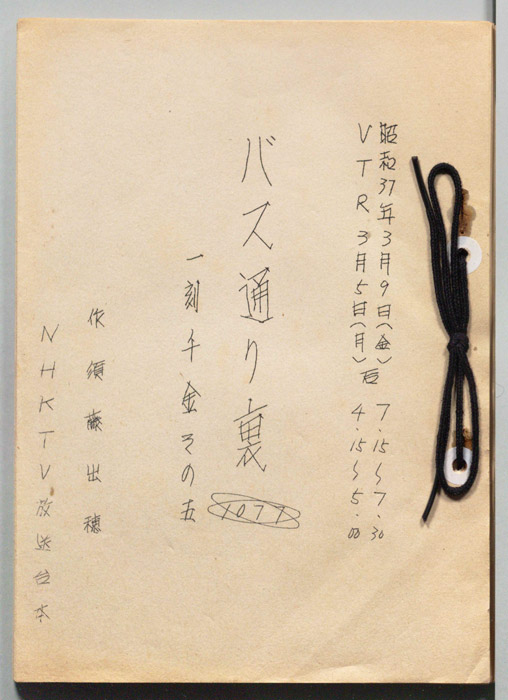 昭和37年3月9日(金) 7.15〜7.30
VTR 3月5日(月) 后 4.15〜5.00
バス通り裏
1077
一刻千金その五
作 須藤出穂
NHKTV放送台本